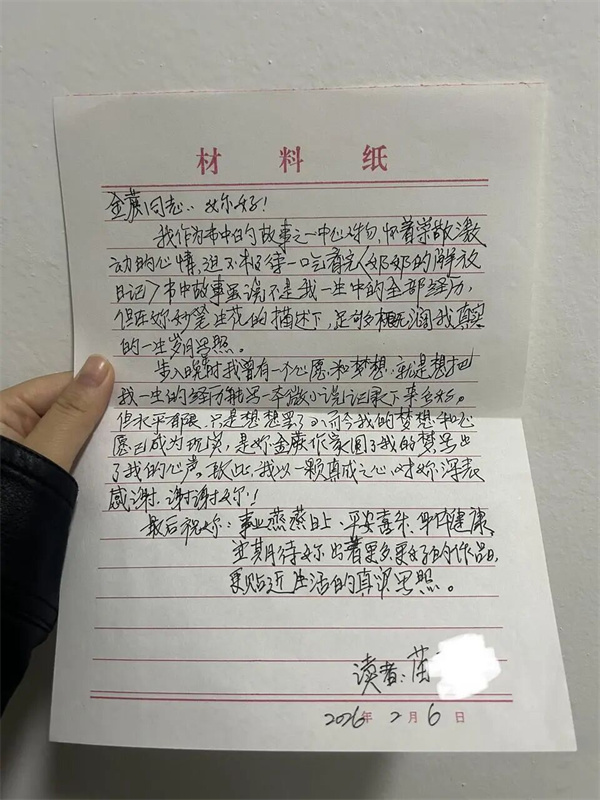 材料纸
金蕨同志：你好！
我作为书中的故事之一中心人物，怀着崇敬激
动的心情，迫不极待一吃看完《奶奶的解放
日记》书中故事虽说不是我一生中的全部经历，
但在妳妙笔生花的描述下，足够多概无阔我真实
的一生岁月写照。
步入晚时我曾有一个心愿和梦想：就是想把
我一生的经历能写一本微小说记录下来多好。
但水平有限，只是想想罢了，而今我的梦想和心
愿已成为现实，是妳金蕨作家圆了我的梦写出
了我的心声。故此，我以一颗真成之心，对妳深表
感谢，谢谢妳！！
最后祝妳：事业燕蒸日上、平安喜乐、身体健康，
並期待妳出著更多更好的作品，
更贴近生活的真实写照。
读者：苗
2026年2月6日